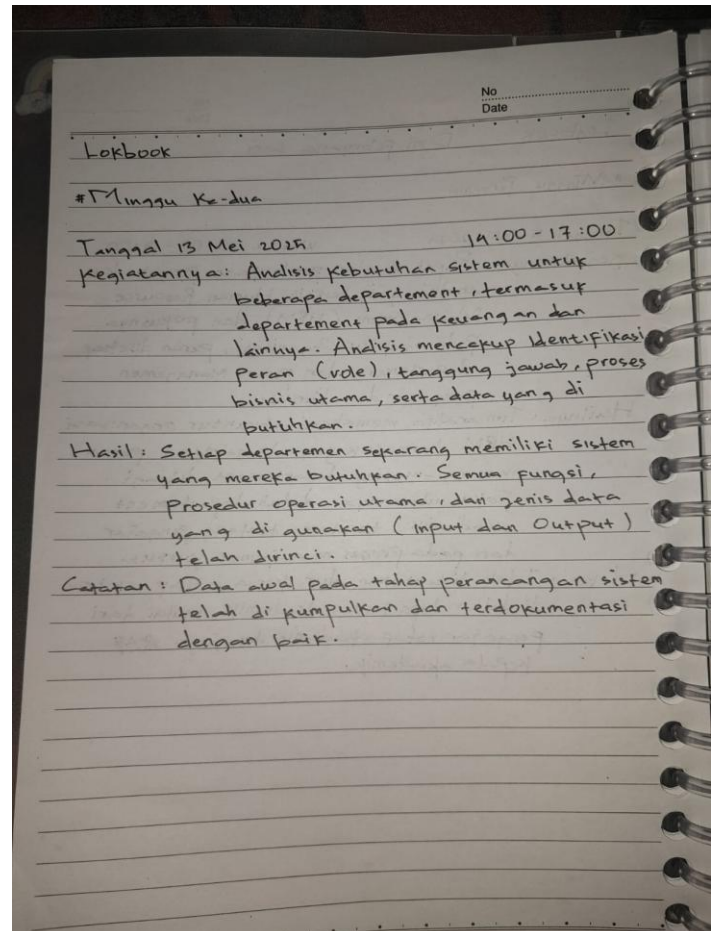 No
Date
Lokbook
#Minggu Ke-dua
Tanggal 13 Mei 2025 14:00-17:00
Kegiatannya: Analisis kebutuhan sistem untuk
beberapa departement, termasuk
departement pada keuangan dan
lainnya. Analisis mencakup identifikasi
peran (role), tanggung jawab, proses
bisnis utama, serta data yang di
butuhkan.
Hasil: Setiap departemen sekarang memiliki sistem
yang mereka butuhkan. Semua fungsi,
prosedur operasi utama, dan jenis data
yang di gunakan (Input dan Output)
telah dirinci.
Catatan: Data awal pada tahap perancangan sistem
telah di kumpulkan dan terdokumentasi
dengan baik.